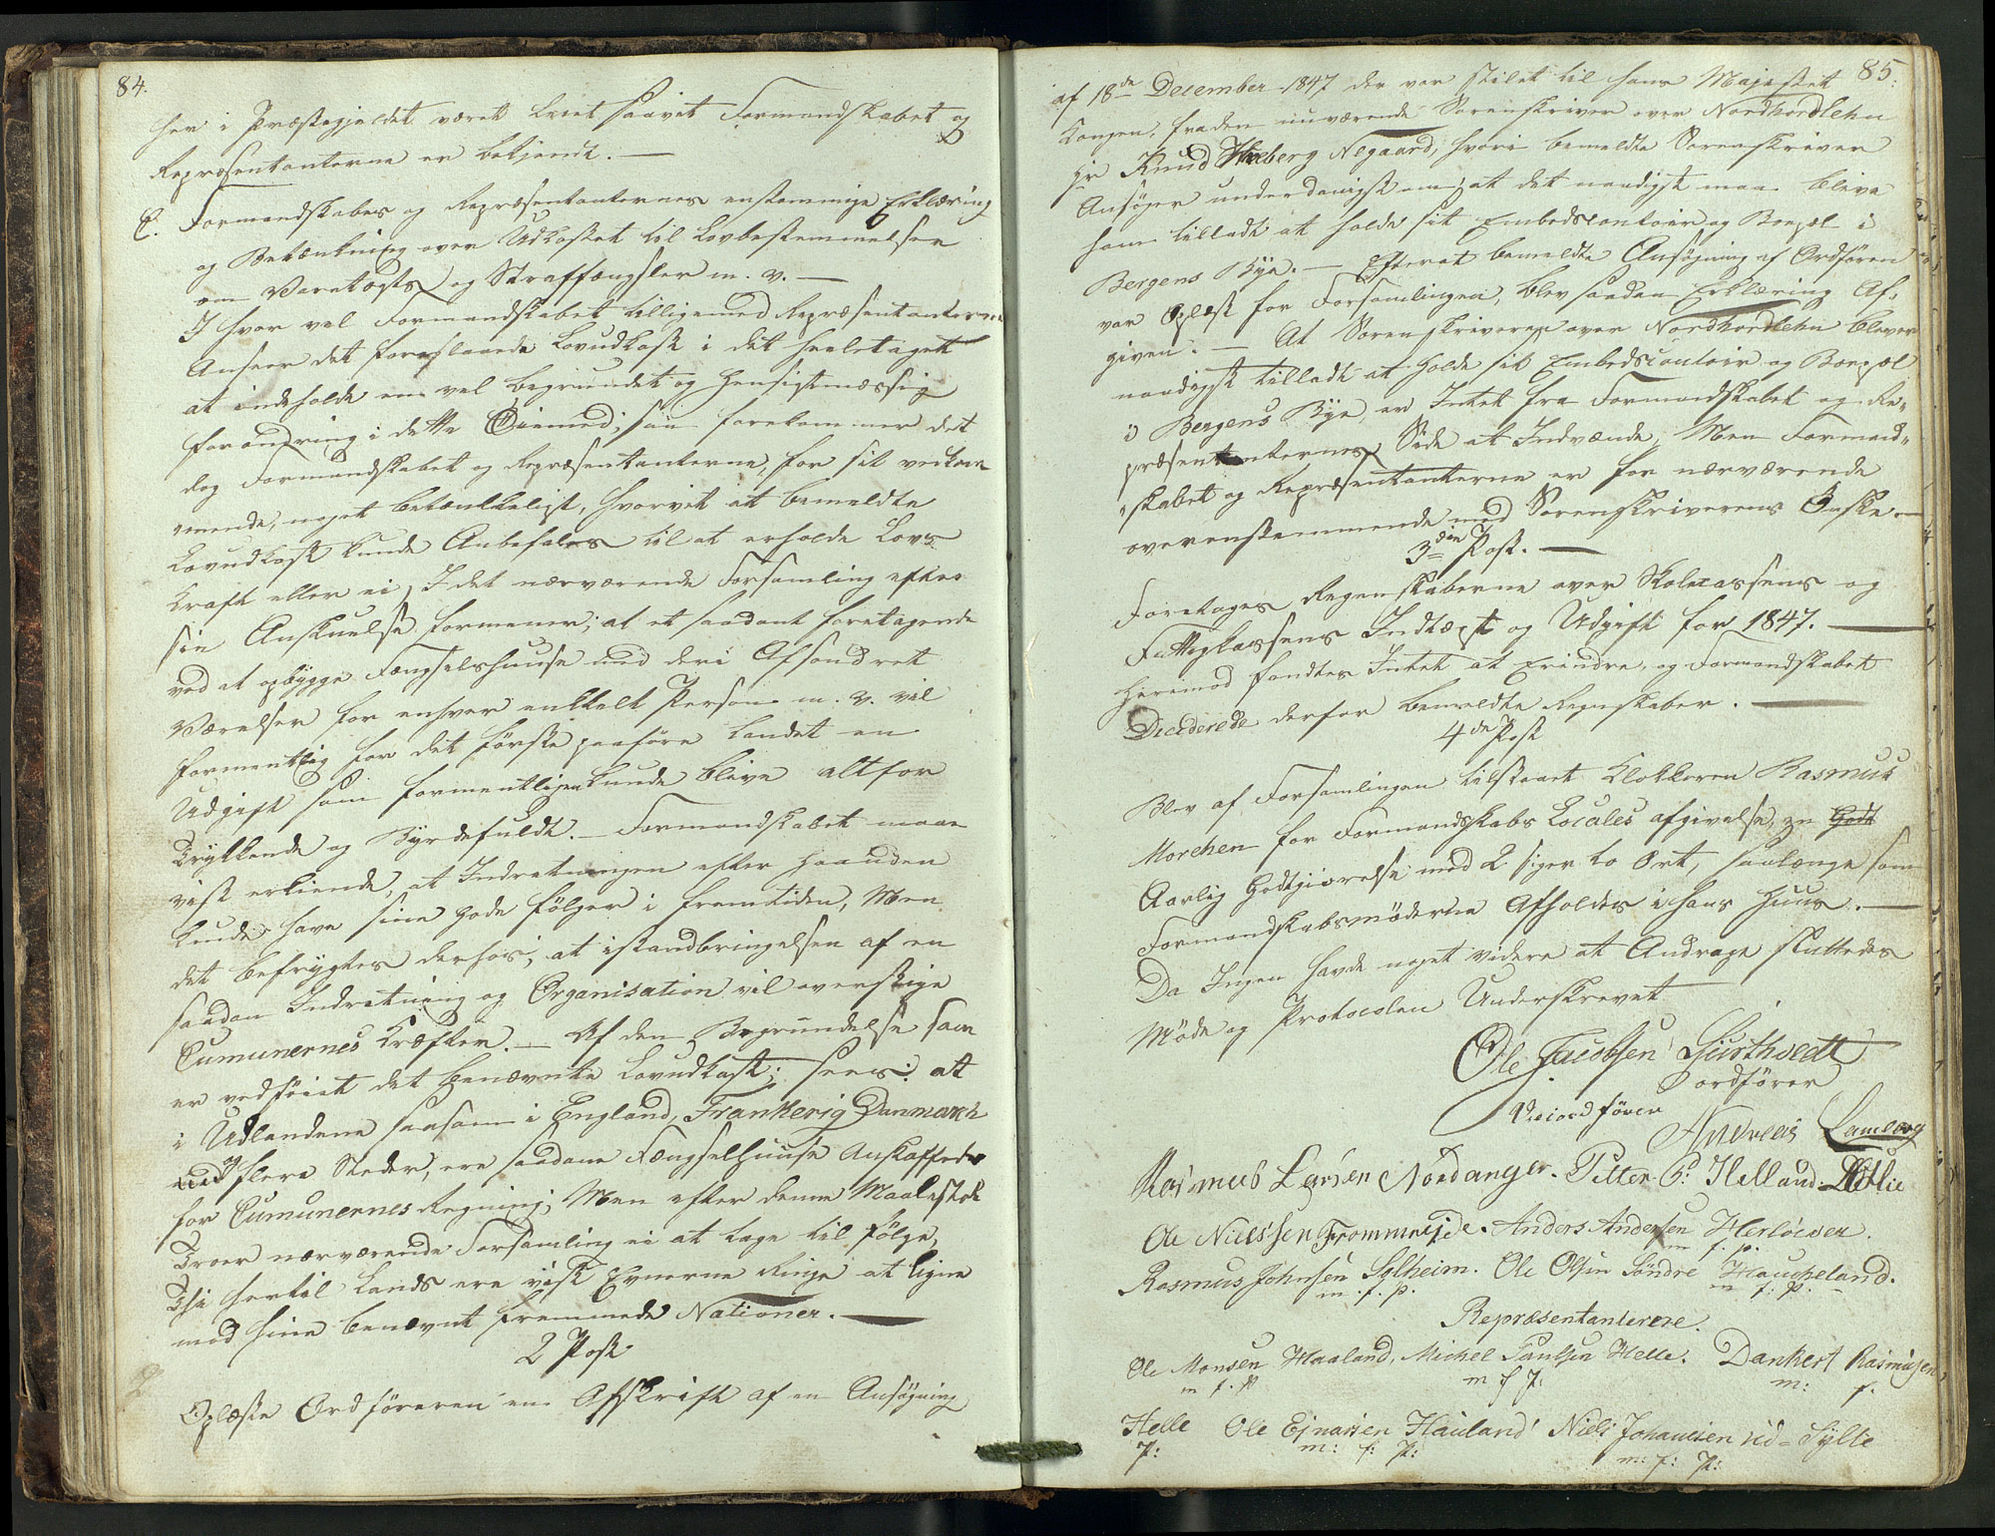 84.
her i Præstegjeldet været læst saavit Formandskabet og
Repræsentanterne er bekjendt. —
C. Formandskabes og Repræsentanternes enstemmige Erklæring
og Betænkning over Udkastet til Lovbestemmelser
om Varetægts og Straffængsler m. v. —
I hvor vel Formandskabet tilligemed Repræsentanterne
Anseer det foreslaaede Lovudkast i det heeletaget
at indeholde en vel begrundet og Hensigtmæssig
forandring i dette Øiemed; saa forekommer det
dog Formandskabet og Repræsentanterne, for sit vedkom
mende, noget betænkeligt, hvorvit at bemeldte
Lovudkast kunde Anbefales til at erholde Lovs
Kraft eller ei, Idet nærværende Forsamling efter
sin Anskuelse formener; at et saadant foretagende
ved at opbygge Fængselshuuse med deri Afsondret
Værelser for enhver enkelt Person m. v. vil
formentlig for det første paaføre Landet en
Udgift som formentligen kunde blive altfor
Trykkende og Byrdefuldt. — Formandskabet maae
vist erkiende, at Indretningen efter Haanden
kunde have sine gode følger i fremtiden, Men
det befrygtes derhos, at istandbringelsen af en
saadan Indretning og Organisation vil overstige
Cumunernes Kræfter. — Af den Begrundelse som
er vedføiet det benævnte Lovudkast; sees: at
i Udlandene saasom i England, Frankerig Danmarck
og flere Steder, ere saadane Fængselhuuse Anskaffede
for Cumunernes Regning; Men efter denne Maalestok
Troer nærværende Forsamling ei at tage til følge,
Thi hertil Lands ere vist Evnerne Ringe at ligne
mod hine benævnt fremmede Nationer. —
2 Post
Oplæste Ordføreren en Afskrift af en Ansøgning
85.
af 18de December 1847 der var stilet til hans Majestet
Kongen, fra den nuværende Sorenskriver over Nordhordlehn
Hr Knud Negaard, hvori bemeldte Sorenskriver
Ansøger underdanigst om, at det naadigst maa blive
ham tilladt at holde sit Embedscontoir og Boepæl i
Bergens Bye. — Efterat bemeldte Ansøgning af Ordføren
var Oplæst for Forsamlingen, blev saadan Erklæring Af-
given: — At Sorenskriveren over Nordhordlehn bliver
naadigst tilladt at holde sit Embedscontoir og Boepæl
i Bergens Bye, er Intet fra Formandskabet og Re-
præsentanternes Side at Indvænde, Men Formand-
skabet og Repræsentanterne er for nærværende
overenstemmende med Sorenskriverens Ønske. —
3die Post. —
Foretages Regenskaberne over Skolecassens og
Fattigkassens Indtægt og Udgift for 1847. —
Herimod fandtes Intet at Erindre, og Formandskabet
Deciderede derfor bemeldte Regnskaber. —
4de Post
Blev af Forsamlingen tilstaaet Klokkeren Rasmus
Morchen for Formandskabs Locales afgivelse, en Godt
Aarlig Godtgiørelse med 2 siger to Ort, saalænge som
Formandskabsmøderne Afholdes i hans Huus. —
Da Ingen havde noget videre at Andrage sluttedes
Møde og Protocolen Underskrevet
Ole Jacobsen Giirthvedt
ordfører
Viceordfører
Andreas Lamberg
Rasmus Larsen Nordanger. Petter P: Helland.
Ole Nielssen Frommreide. Anders Andersen Herløever.
m. f. p.
Rasmus Johnsen Sylheim. Ole Olsen Söndre Haucheland.
m. f. p. m. f. p.
Repræsentanterere.
Ole Monsen Haaland, Michel Paulsen Helle. Dankert Rasmusen
m f. p m f p: m: f.
Helle Ole Ejnarsen Hauland Niels Johannesen Sylte
p: m: f: p: m: f: p: